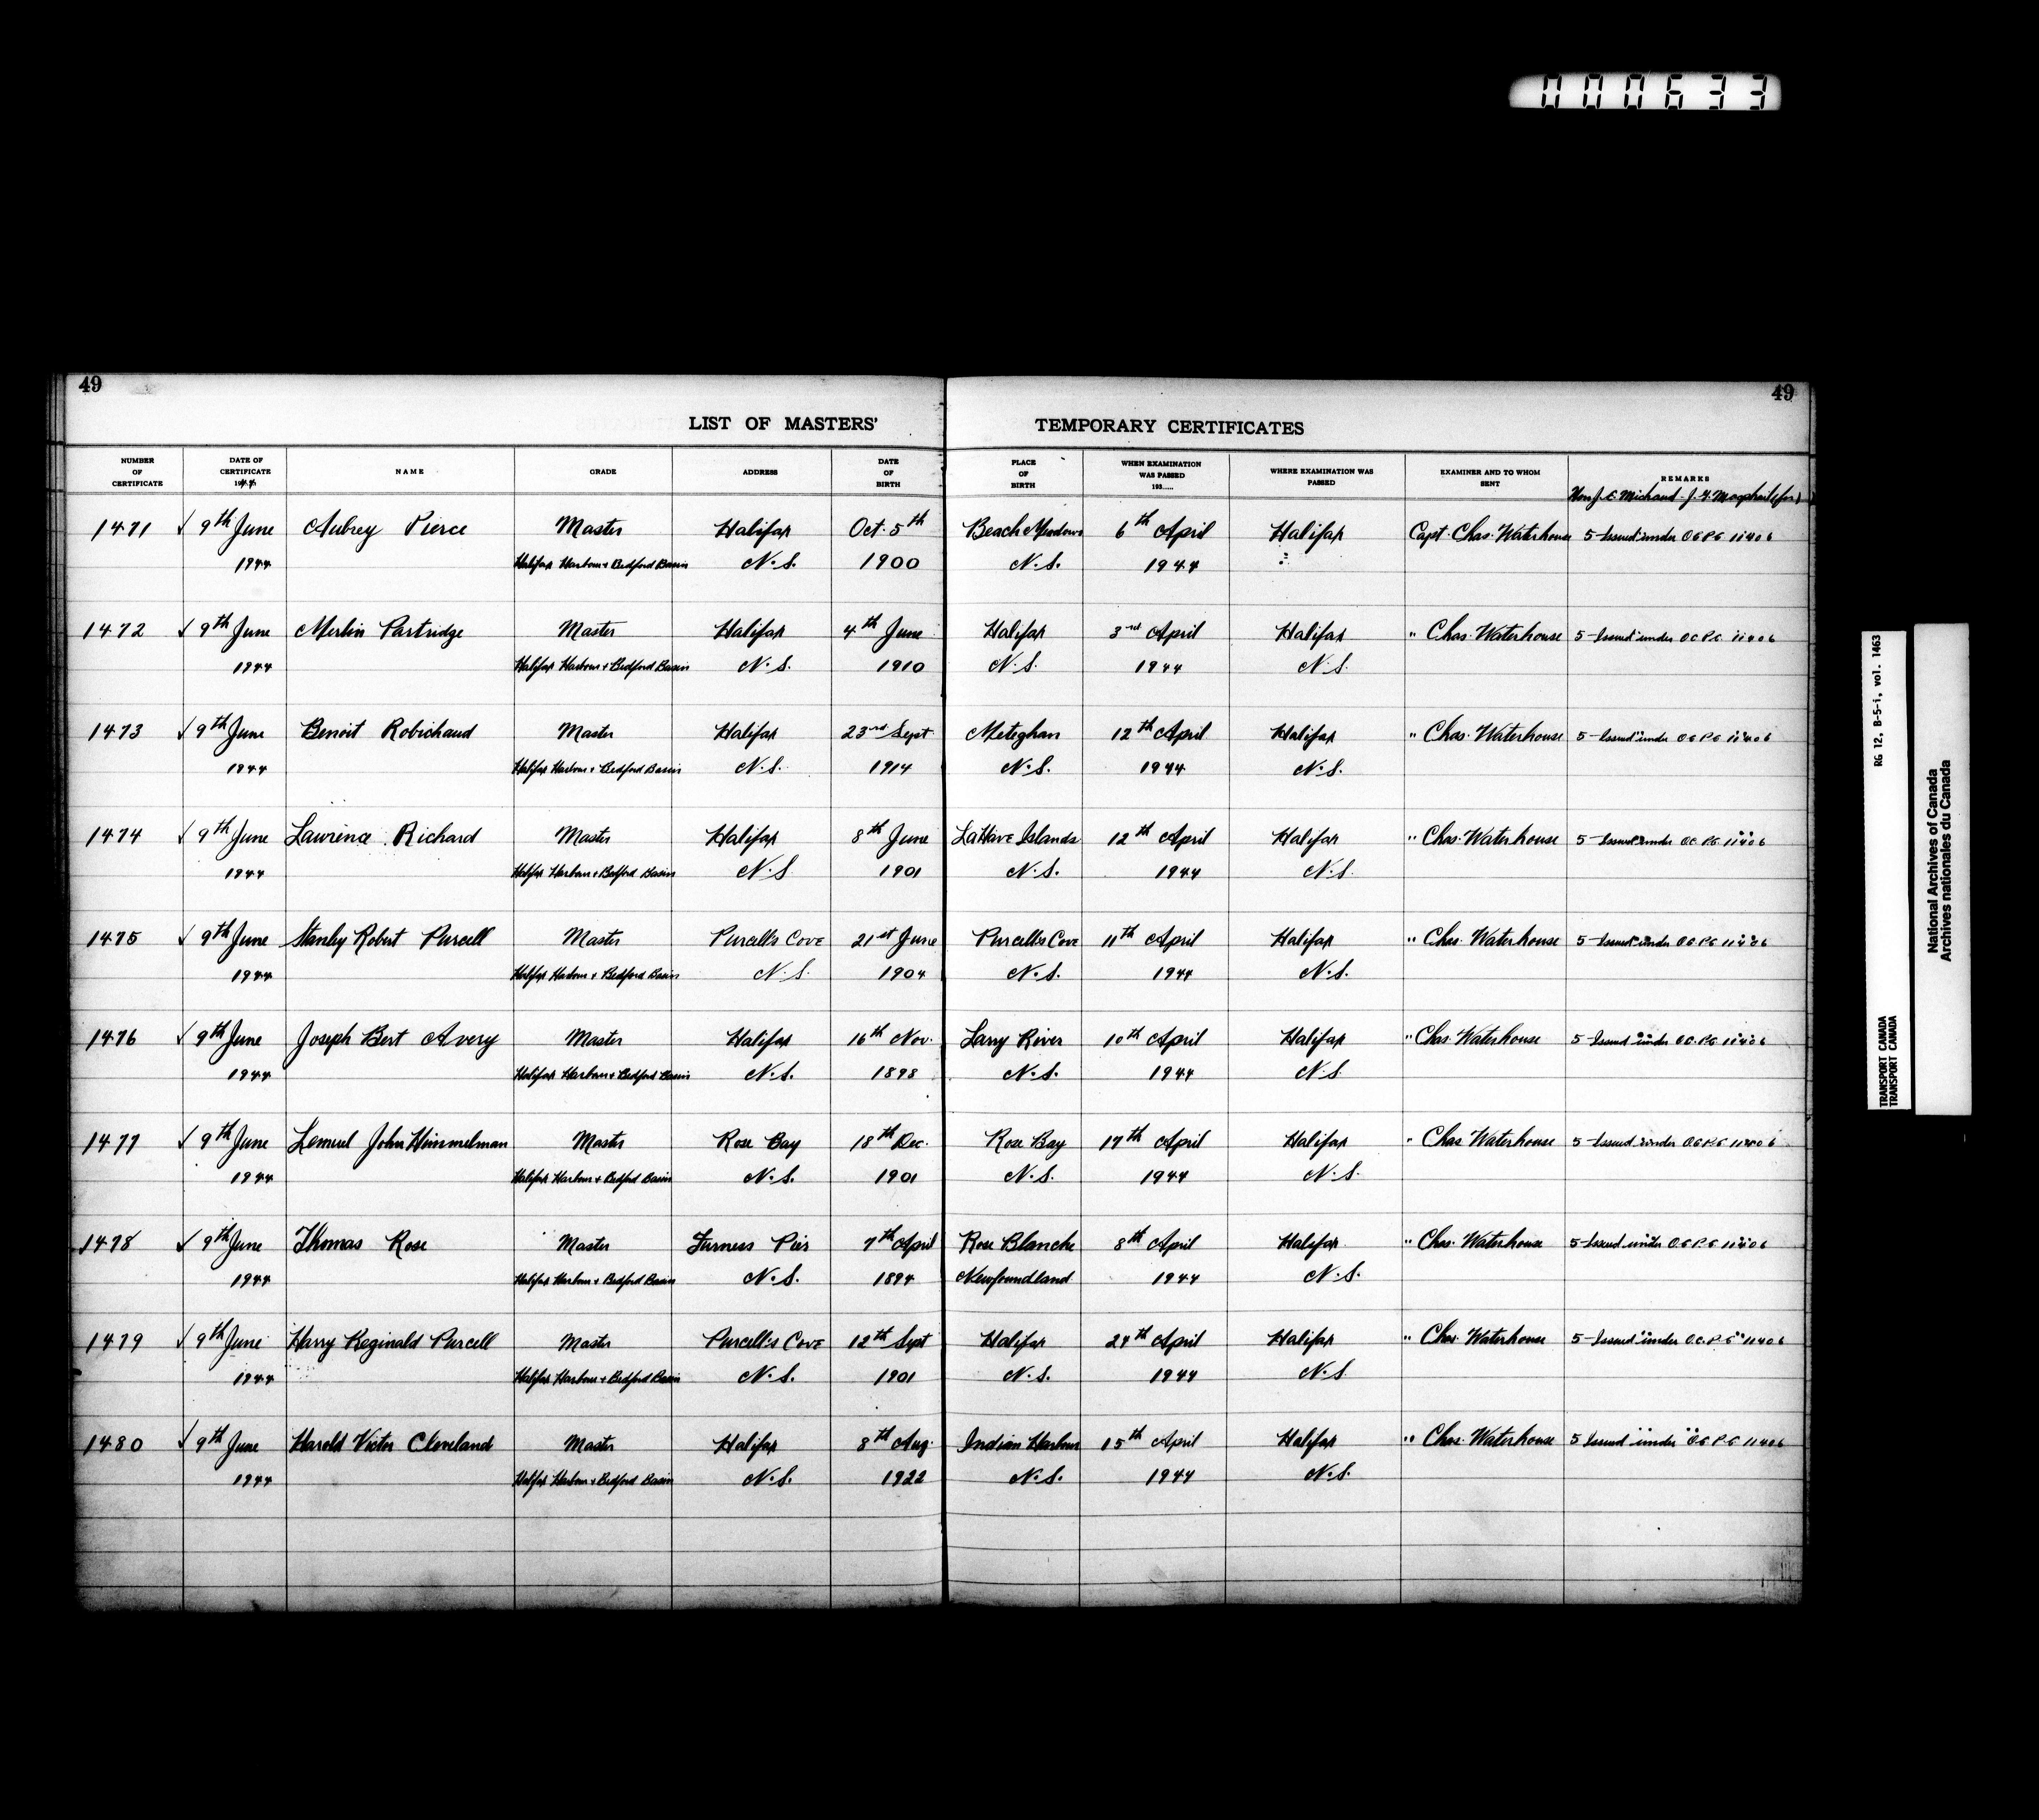 000633
49
49
LIST OF MASTERS' TEMPORARY CERTIFICATES
NUMBER OF CERTIFICATE DATE OF CERTIFICATE 1944 NAME GRADE ADDRESS DATE OF BIRTH PLACE OF BIRTH WHEN EXAMINATION WAS PASSED 193..... WHERE EXAMINATION WAS PASSED EXAMINER AND TO WHOM SENT REMARKS
Hon J. E. Michaud - J. F. Macphail (for)
1471 √ 9th June Aubrey Pierce Master Halifax Oct. 5th Beach Meadows 6th April Halifax Capt. Chas. Waterhouse 5 - Issued under O C P.C 11406
1944 Halifax Harbour + Bedford Basin N.S. 1900 N.S. 1944 "
1472 √ 9th June Merlin Partridge Master Halifax 4th June Halifax 3rd April Halifax " Chas. Waterhouse 5 - Issued under O C P.C 11406
1944 Halifax Harbour + Bedford Basin N.S. 1910 N.S. 1944 N.S.
1473 √ 9th June Benoit Robichaud Master Halifax 23rd Sept Meteghan 12th April Halifax " Chas. Waterhouse 5 - Issued under O C P.C 11406
1944 Halifax Harbour + Bedford Basin N.S. 1914 N.S. 1944 N.S.
1474 √ 9th June Lawrence Richard Master Halifax 8th June LaHave Islands 12th April Halifax " Chas. Waterhouse 5 - Issued under O.C. P.C. 11406
1944 Halifax Harbour + Bedford Basin N.S 1901 N.S. 1944 N.S.
1475 √ 9th June Stanley Robert Purcell Master Purcell's Cove 21st June Purcell's Cove 11th April Halifax " Chas. Waterhouse 5 - Issued under O C P.C 11406
1944 Halifax Harbour + Bedford Basin N.S. 1904 N.S. 1944 N.S.
1476 √ 9th June Joseph Bert Avery Master Halifax 16th Nov. Larry River 10th April Halifax " Chas. Waterhouse 5 - Issued under O.C. P.C 11406
1944 Halifax Harbour + Bedford Basin N.S. 1898 N.S. 1944 N.S
1477 √ 9th June Lemuel John Himmelman Master Rose Bay 18th Dec. Rose Bay 17th April Halifax " Chas Waterhouse 5 - Issued under O C P.C 11406
1944 Halifax Harbour + Bedford Basin N.S. 1901 N.S. 1944 N.S.
1478 √ 9th June Thomas Rose Master Furness Pier 7th April Rose Blanche 8th April Halifax " Chas. Waterhouse 5 - Issued under O C P.C 11406
1944 Halifax Harbour + Bedford Basin N.S. 1894 Newfoundland 1944 N.S.
1479 √ 9th June Harry Reginald Purcell Master Purcell's Cove 12th Sept Halifax 24th April Halifax " Chas. Waterhouse 5 - Issued under O.C. P.C 11406
1944 Halifax Harbour + Bedford Basin N.S. 1901 N.S. 1944 N.S
1480 √ 9th June Harold Victor Cleveland Master Halifax 8th Aug. Indian Harbour 15th April Halifax " Chas. Waterhouse 5 Issued under O C P.C 11406
1944 Halifax Harbour + Bedford Basin N.S. 1922 N.S. 1944 N.S.
RG 12, B-5-i, vol. 1463
TRANSPORT CANADA
TRANSPORT CANADA
National Archives of Canada
Archives nationales du Canada